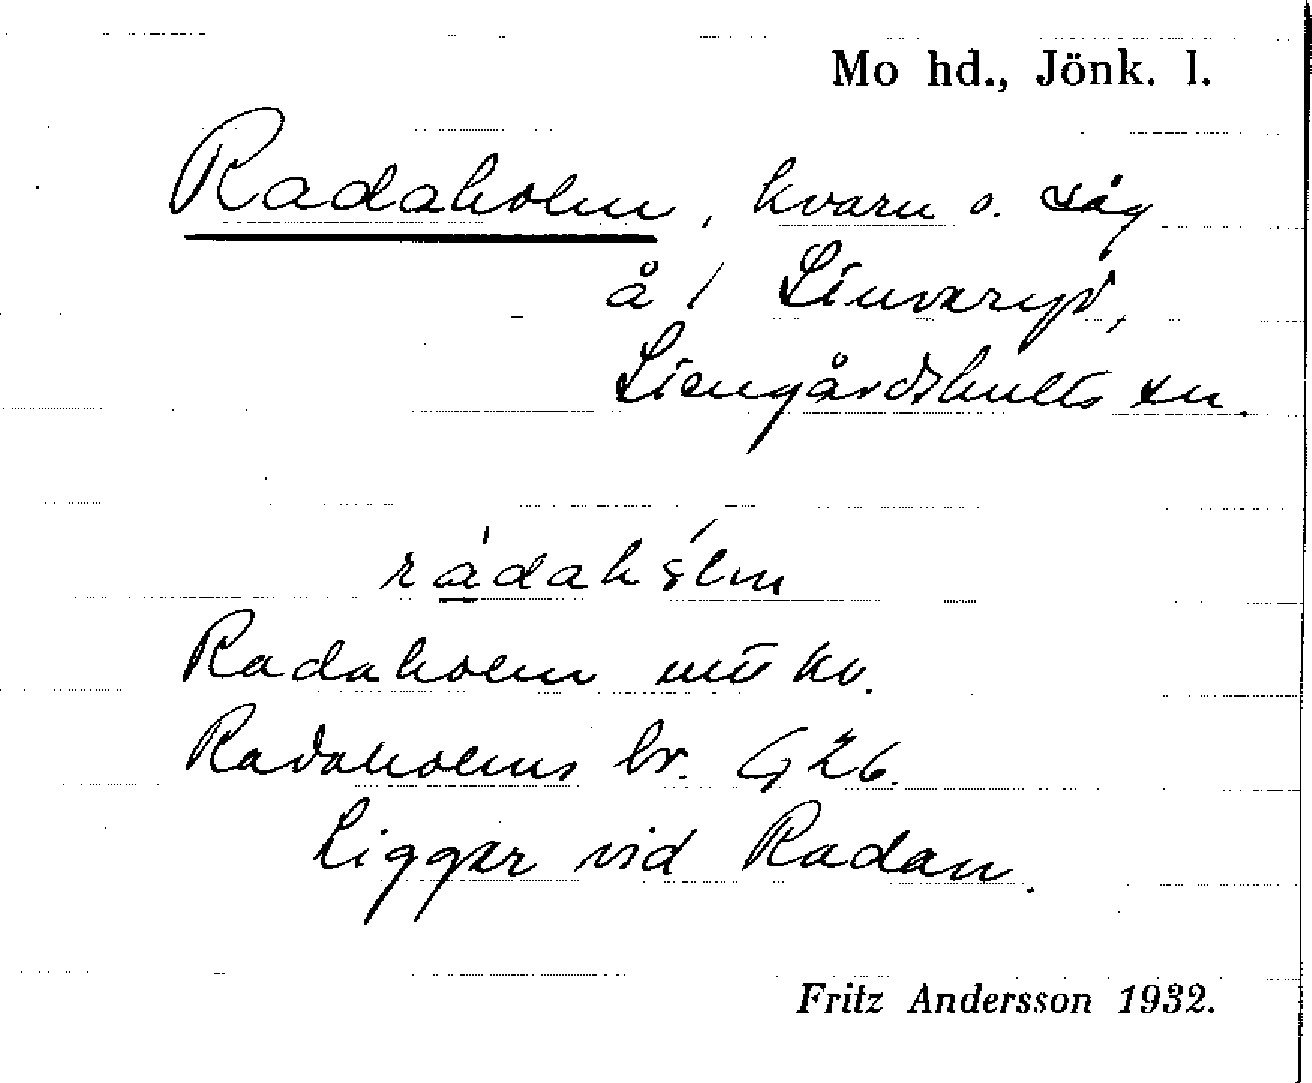 Mo hd., Jönk. l.
Radaholm, kvarn o. såg
å 1 Linneryd,
Liengårdshults sn.
rádahólm
Radaholm mtl kv.
Radaholms br. G 26.
Ligger vid Radan.
Fritz Andersson 1932.